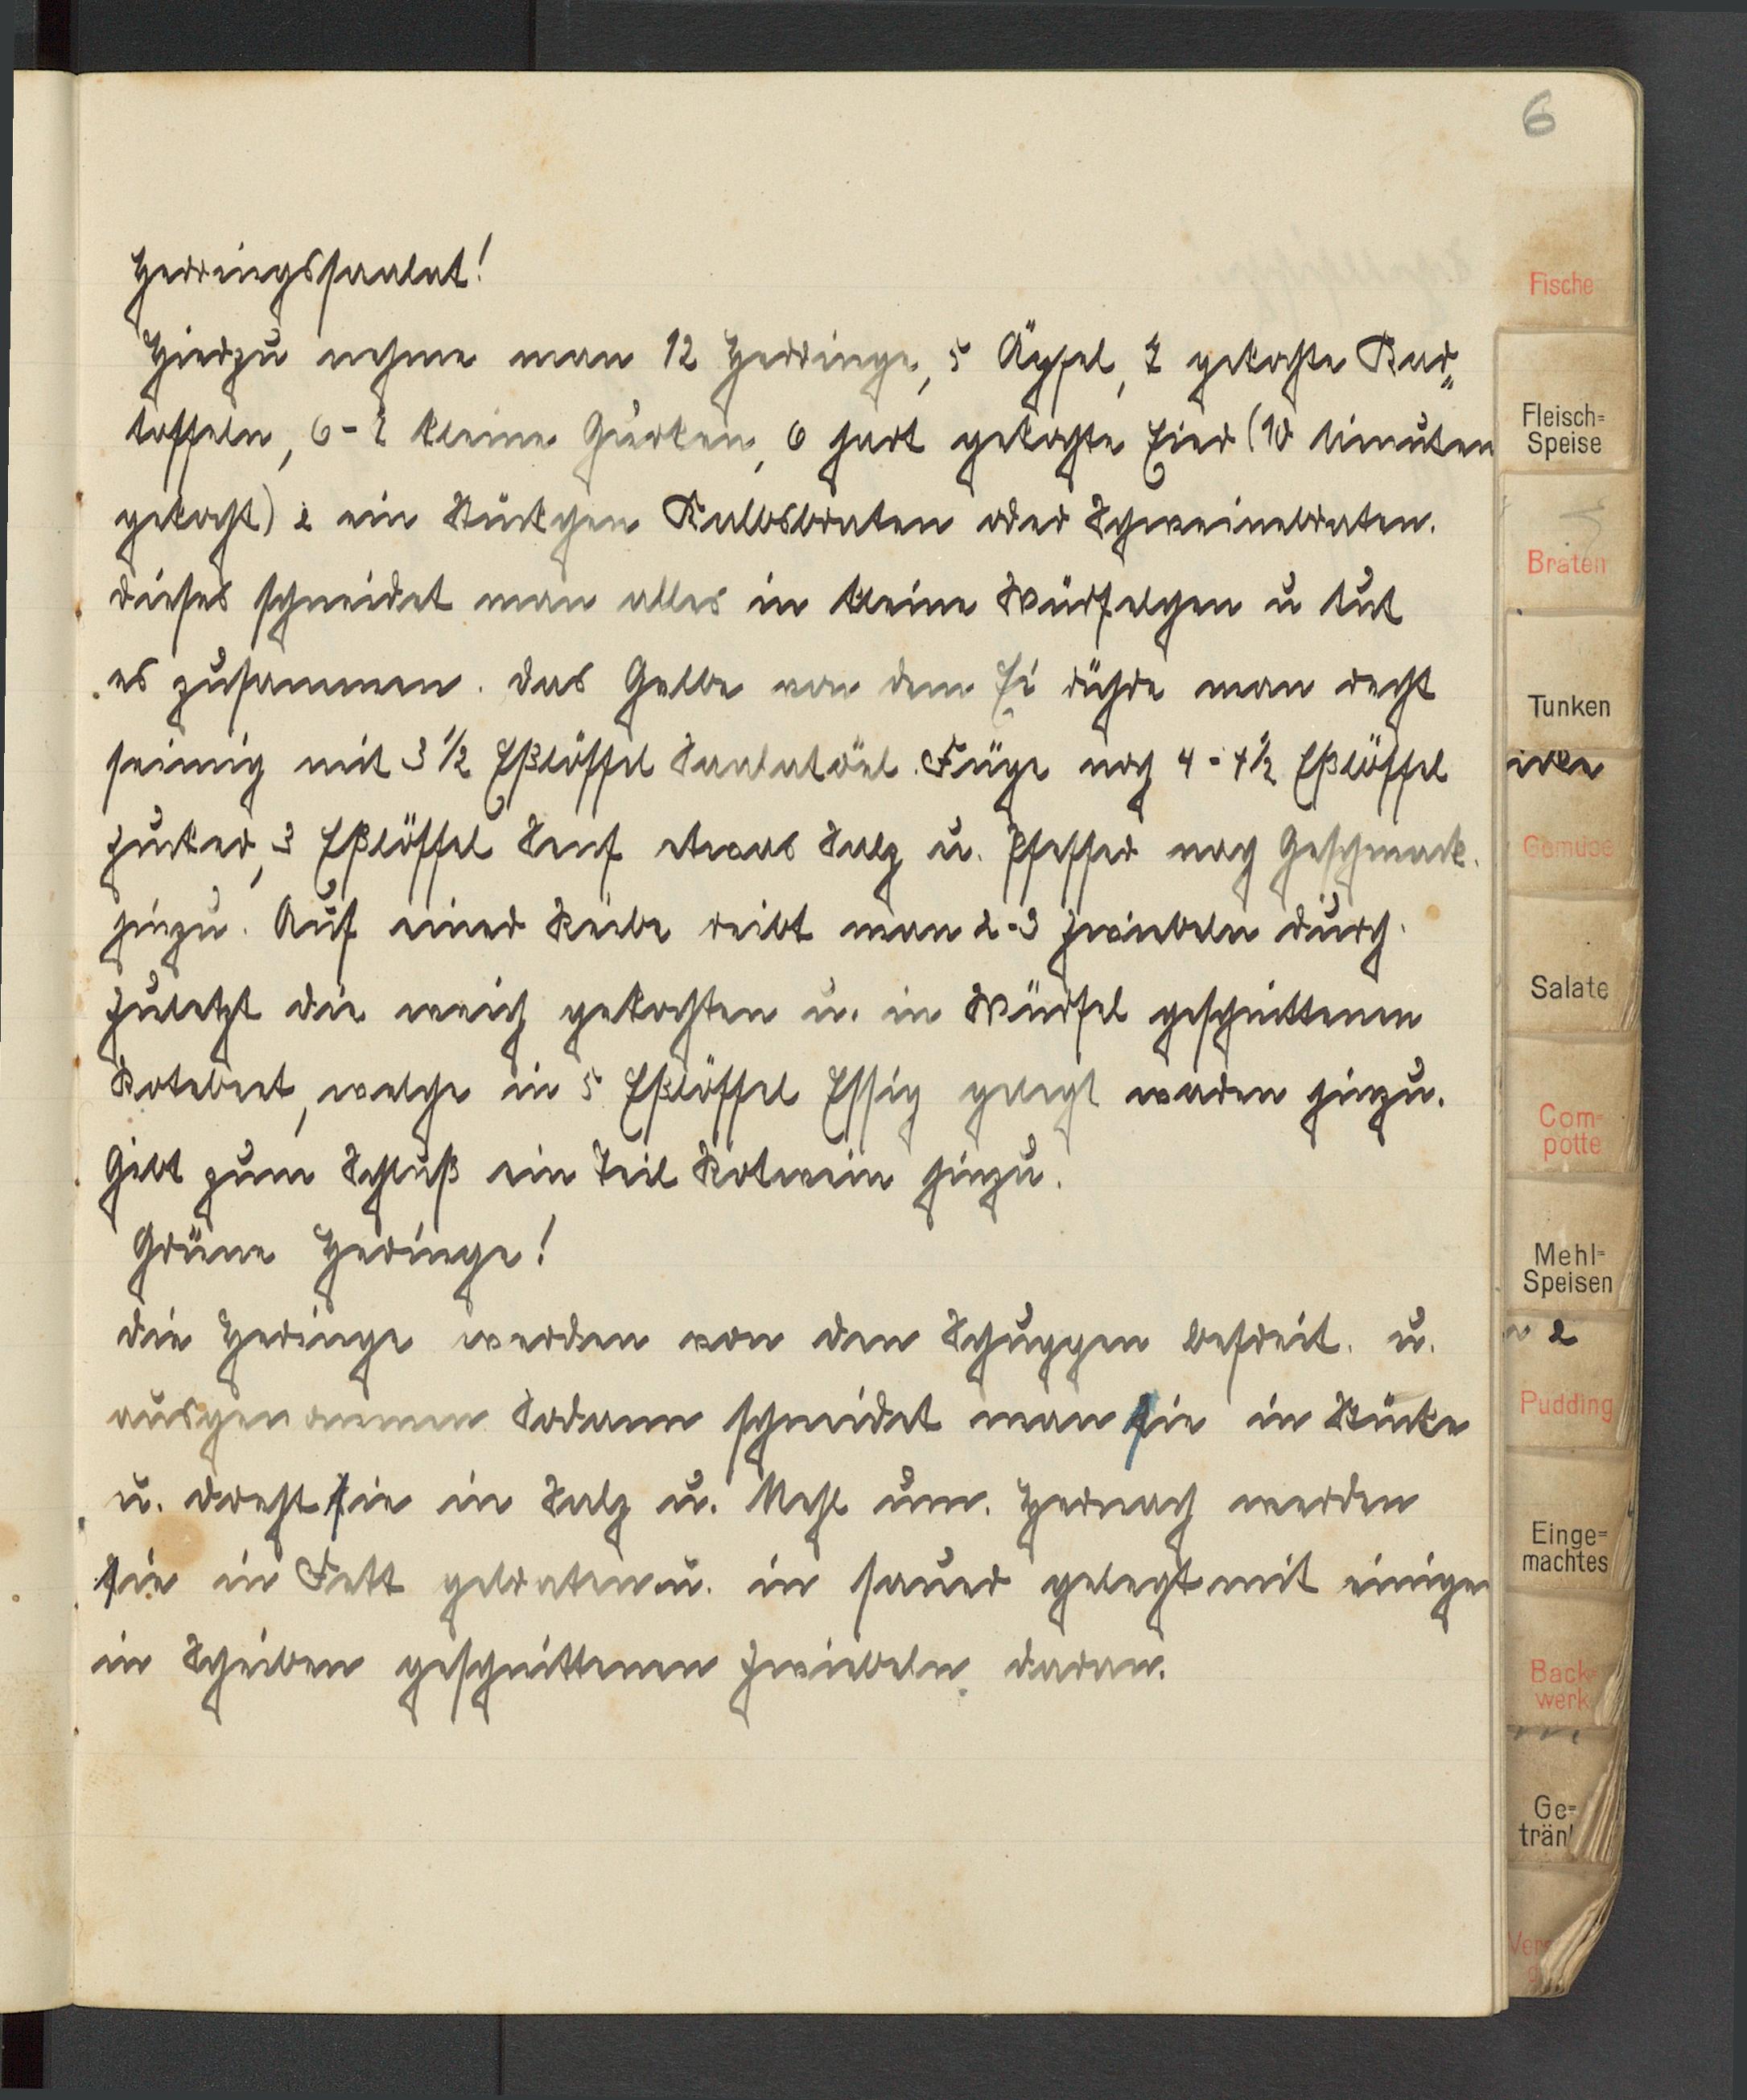 6
Herringssaalat!
Hierzu nehme man 12 Herringe, 5 Äpfel, 7 gekochte Kar„
toffeln, 6-7 kleine Gurken, 6 hart gekochte Eier (10 Minuten
gekocht) ein Stückchen Kalbsbraten oder Schweinebraten.
dieses schneidet man alles in kleine Würfelchen u tut
es zusammen. das Gelbe von dem Ei rühre man recht
seimig mit 3 ½ Eßlöffel Saalatöel. Füge noch 4-4½ Eßlöffel
Zucker, 3 Eßlöffel Senf etwas Salz u. Pfeffer nach Geschmack.
hinzu. Auf einer Reibe reibt man 2-3 Zwiebeln durch.
Zuletzt die weich gekochten u. in Würfel geschnittenen
Rotebeet, welche in 5 Eßlöffel Essig gelegt waren hinzu.
Gibt zum Schluß ein Teil Rotwein hinzu.
Grüne Heringe!
die Heringe werden von den Schuppen befreit. u.
ausgenommen Sodann schneidet man sie in Stücke
u. dreht sie in Salz u. Mehl um. Hernach werden
sie in Fett gebraten u. in sauer gelegt mit einigen
in Scheiben geschnittenen Zwiebeln daran.
Fische
Fleisch=
Speise
Braten
Tunken
Gemüse
Salate
Com=
potte
Mehl=
Speisen
2
Pudding
Einge=
machtes
Back=
werk
Ge=
trän
Ver